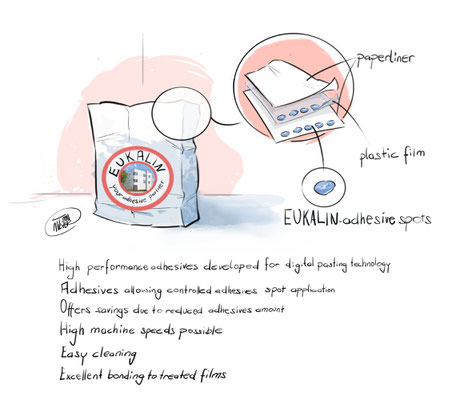 paperliner
plastic film
EUKALIN
your adhesive partner
EUKALIN-adhesive spots
High performance adhesives developed for digital pasting technology
Adhesives allowing controlled adhesives spot application
Offers savings due to reduced adhesives amount
High machine speeds possible
Easy cleaning
Excellent bonding to treated films